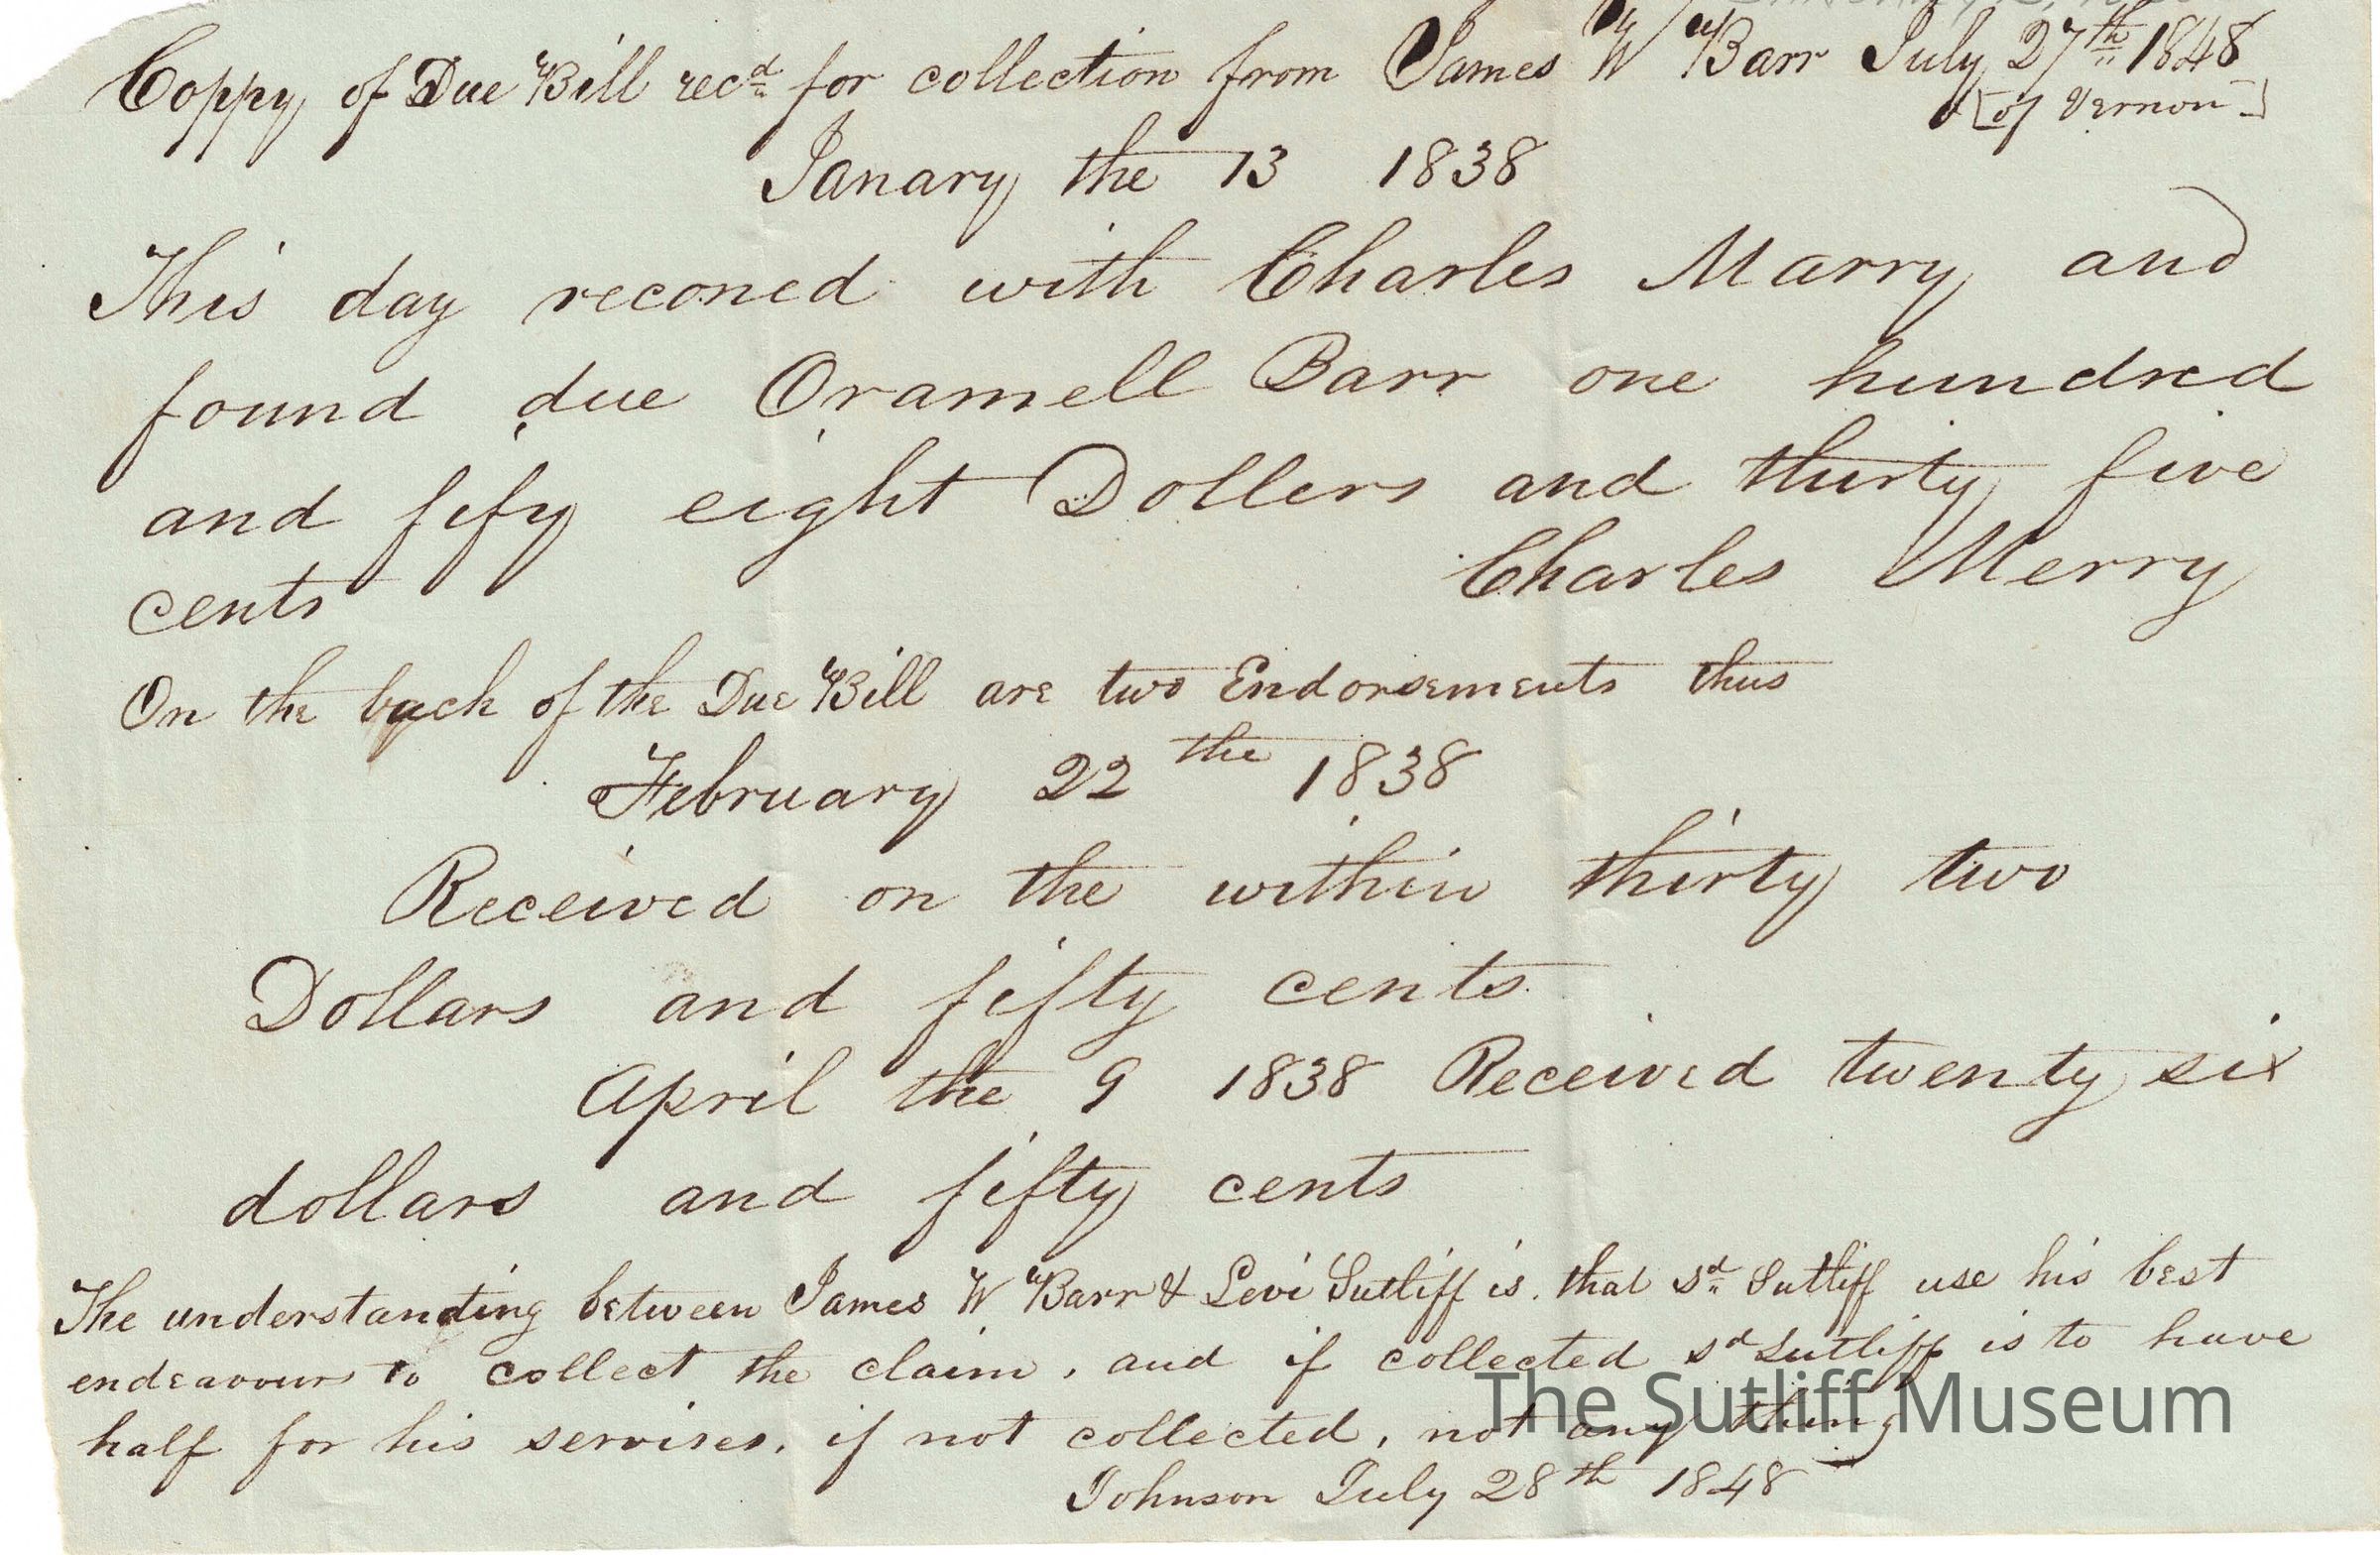 Coppy of Due Bill recd for collection from James W Barr July 27th 1848
[of Vernon]
Janary the 13 1838
This day reconed with Charles Marry and
found due Oramell Barr one hundred
and fify eight Dollers and thirty five
cents Charles Merry
On the back of the Due Bill are two Endorsements thus
February 22 the 1838
Received on the within thirty two
Dollars and fifty cents
April the 9 1838 Received twenty six
dollars and fifty cents
The understanding between James W Barr & Levi Sutliff is. that sd Sutliff use his best
endeavours to collect the claim, and if collected sd Sutliff is to have
half for his servises. if not collected, not any thing
Johnson July 28th 1848
The Sutliff Museum